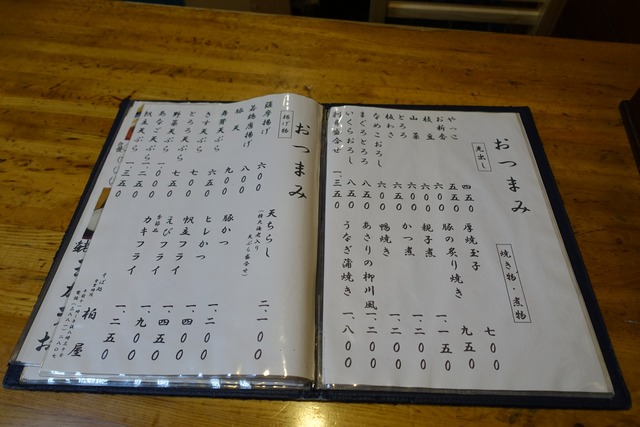 おつまみ
先出し
やっこ 四五〇
お新香 五五〇
枝豆 六〇〇
山菜 六〇〇
とろろ 六〇〇
板わさ 六〇〇
なめこおろし
まぐろとろろ 八五〇
いくらおろし 八五〇
刺身盛合せ 一、三五〇
焼き物・煮物
厚焼玉子 七〇〇
豚の炙り焼き 九五〇
親子煮 一、一五〇
かつ煮 一、二〇〇
鴨焼き 一、二〇〇
あさりの柳川風 一、二〇〇
うなぎ蒲焼き 一、八〇〇
おつまみ
揚げ物
薩摩揚げ 六〇〇
若鶏唐揚げ 八〇〇
豚天
舞茸天ぷら
きす天ぷら
とろろ天ぷら
野菜天ぷら
あなご天ぷら 一、二五〇
帆立天ぷら 一、三五〇
天ちらし 二一〇〇
(特大海老入り
天ぷら盛合せ)
豚かつ 一、二〇〇
ヒレかつ 一、四〇〇
帆立フライ 一、四五〇
えびフライ 一、九〇〇
季節品
カキフライ 一、二五〇
そば処
柏屋